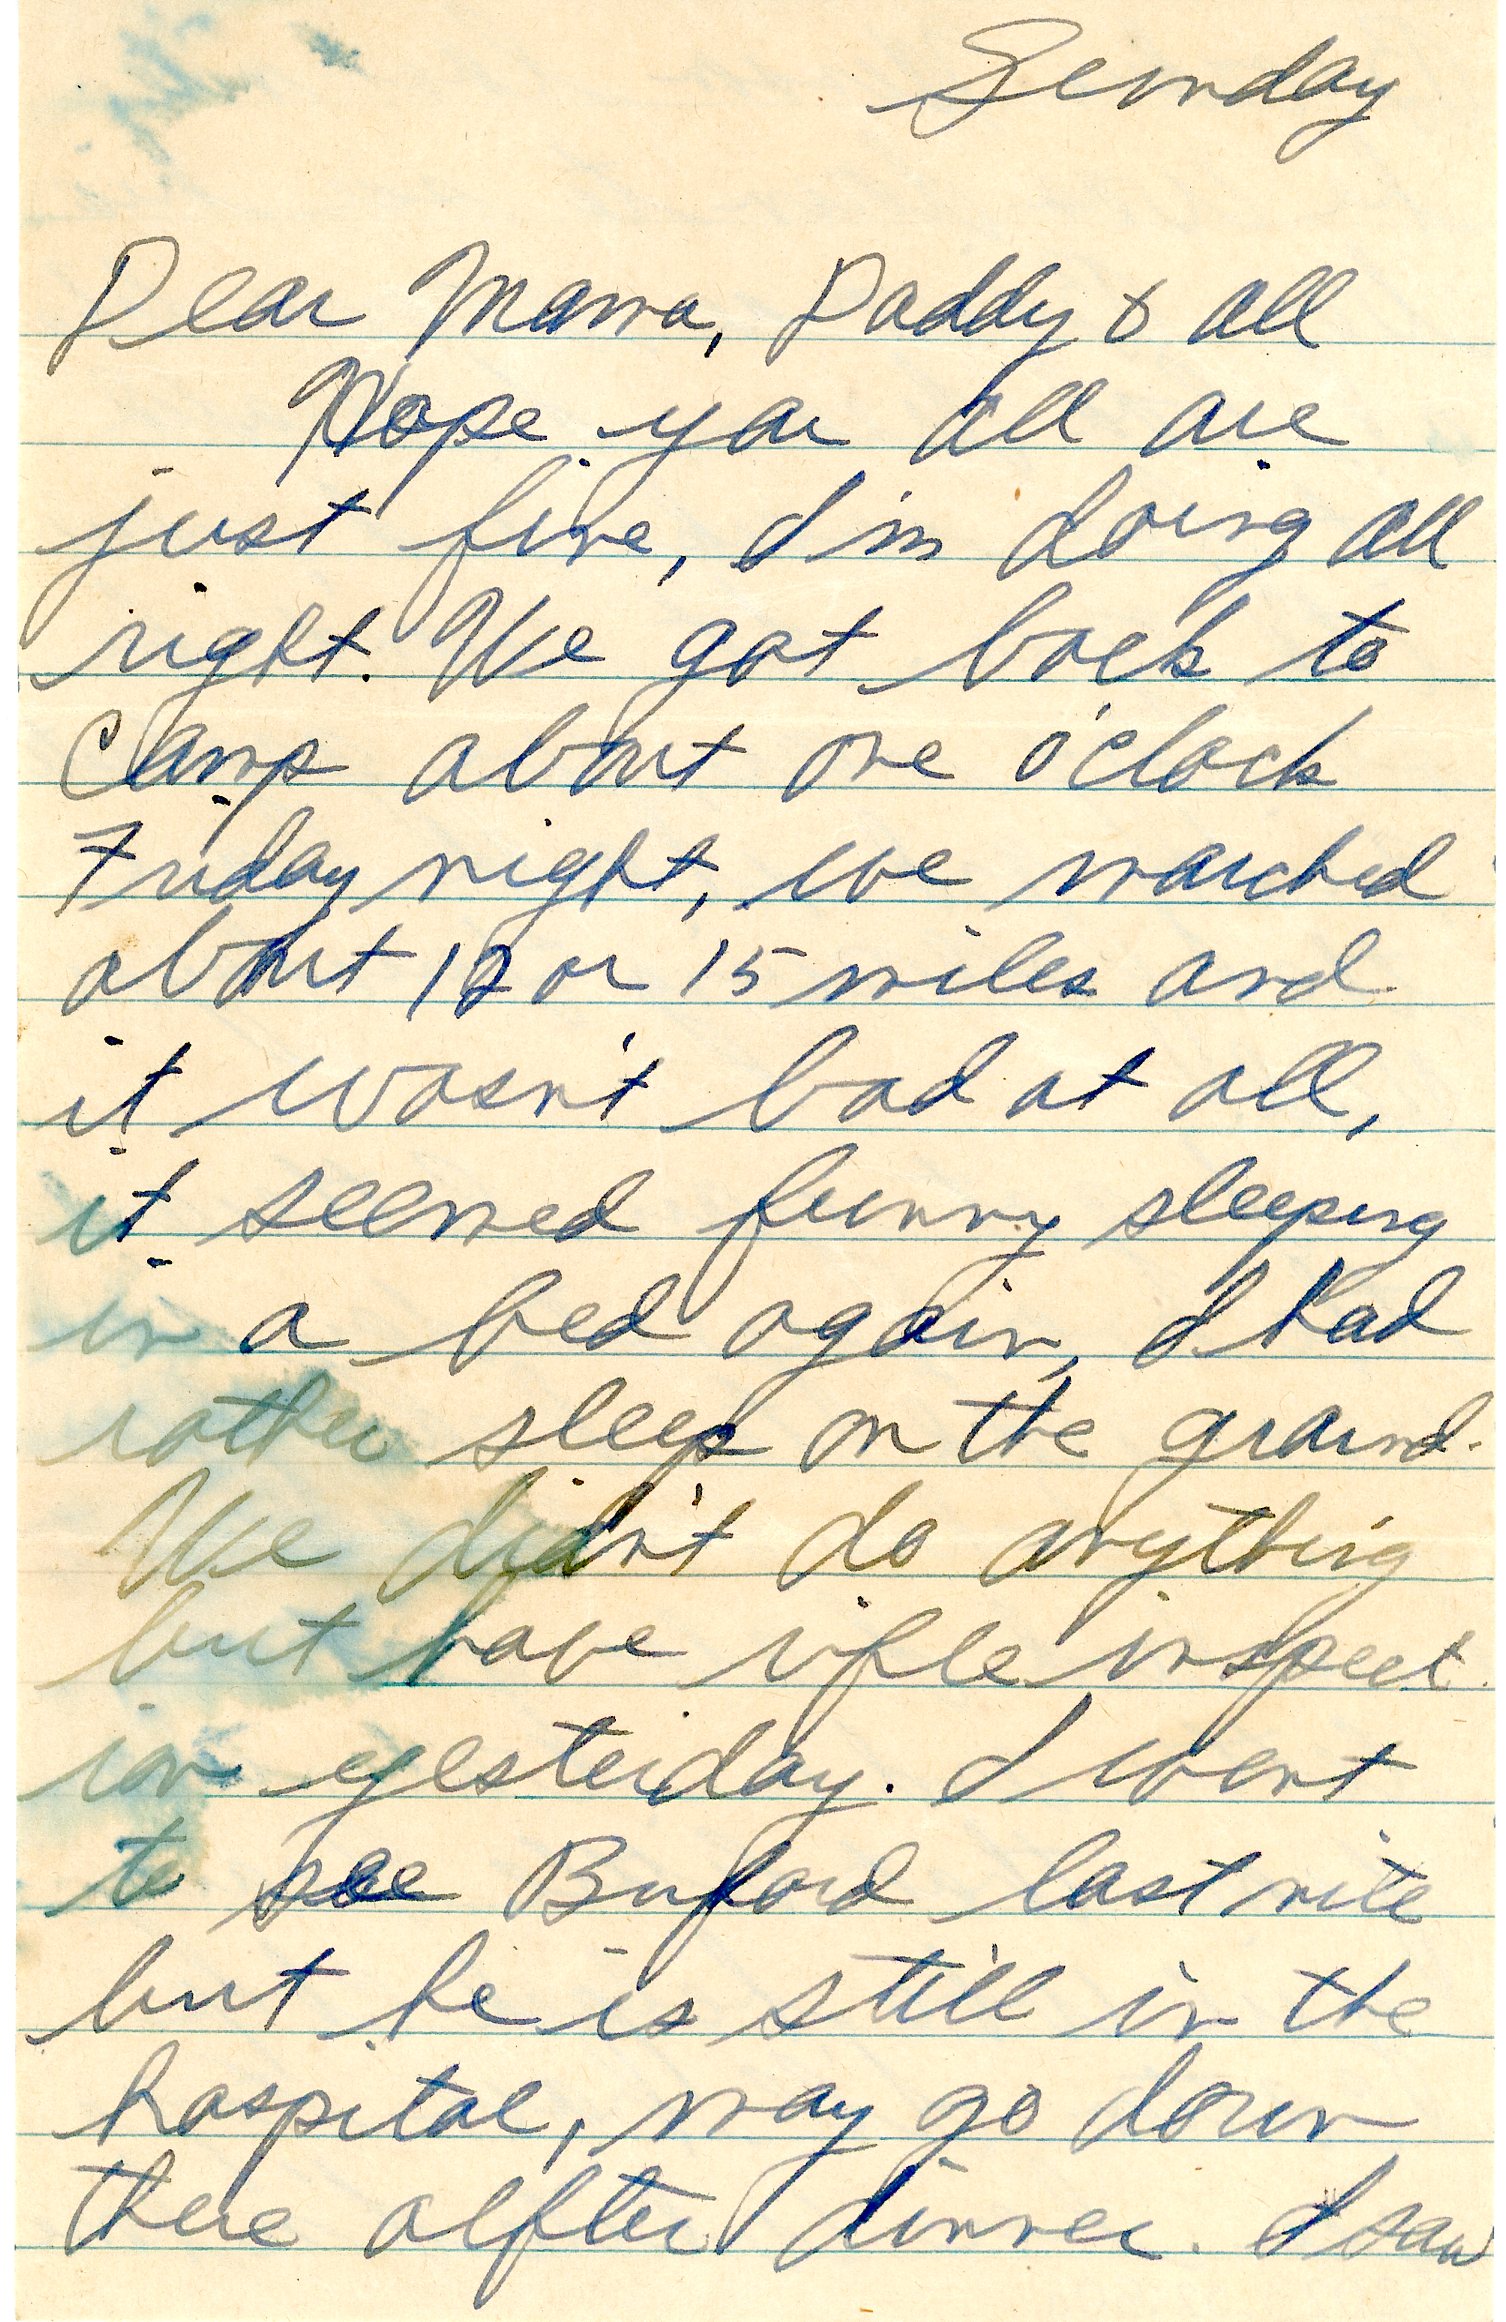 Sunday
Dear Mama, Daddy & all
Hope you all are
just fine, I'm doing all
right. We got back to
Camp about one o'clock
Friday night, we marched
about 12 or 15 miles and
it wasn't bad at all,
it seemed funny sleeping
in a bed again, I had
rather sleep on the ground.
We didn't do anything
but have rifle inspect
ion yesterday. I went
to see Buford last nite
but he is still in the
hospital, may go down
there after dinner. I saw